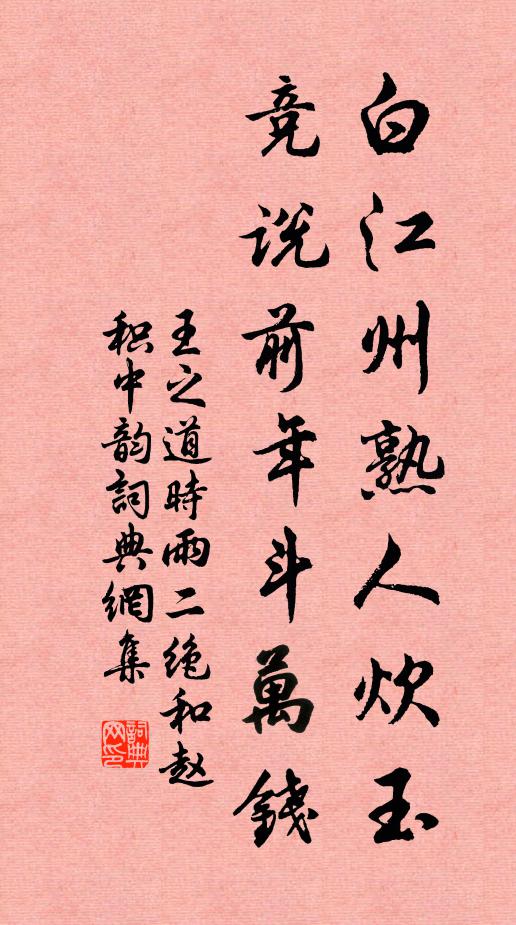 白江州熟人炊玉
競説前年斗萬錢
王之道時雨二绝和赵
积中韵詞典網集
詞典网印